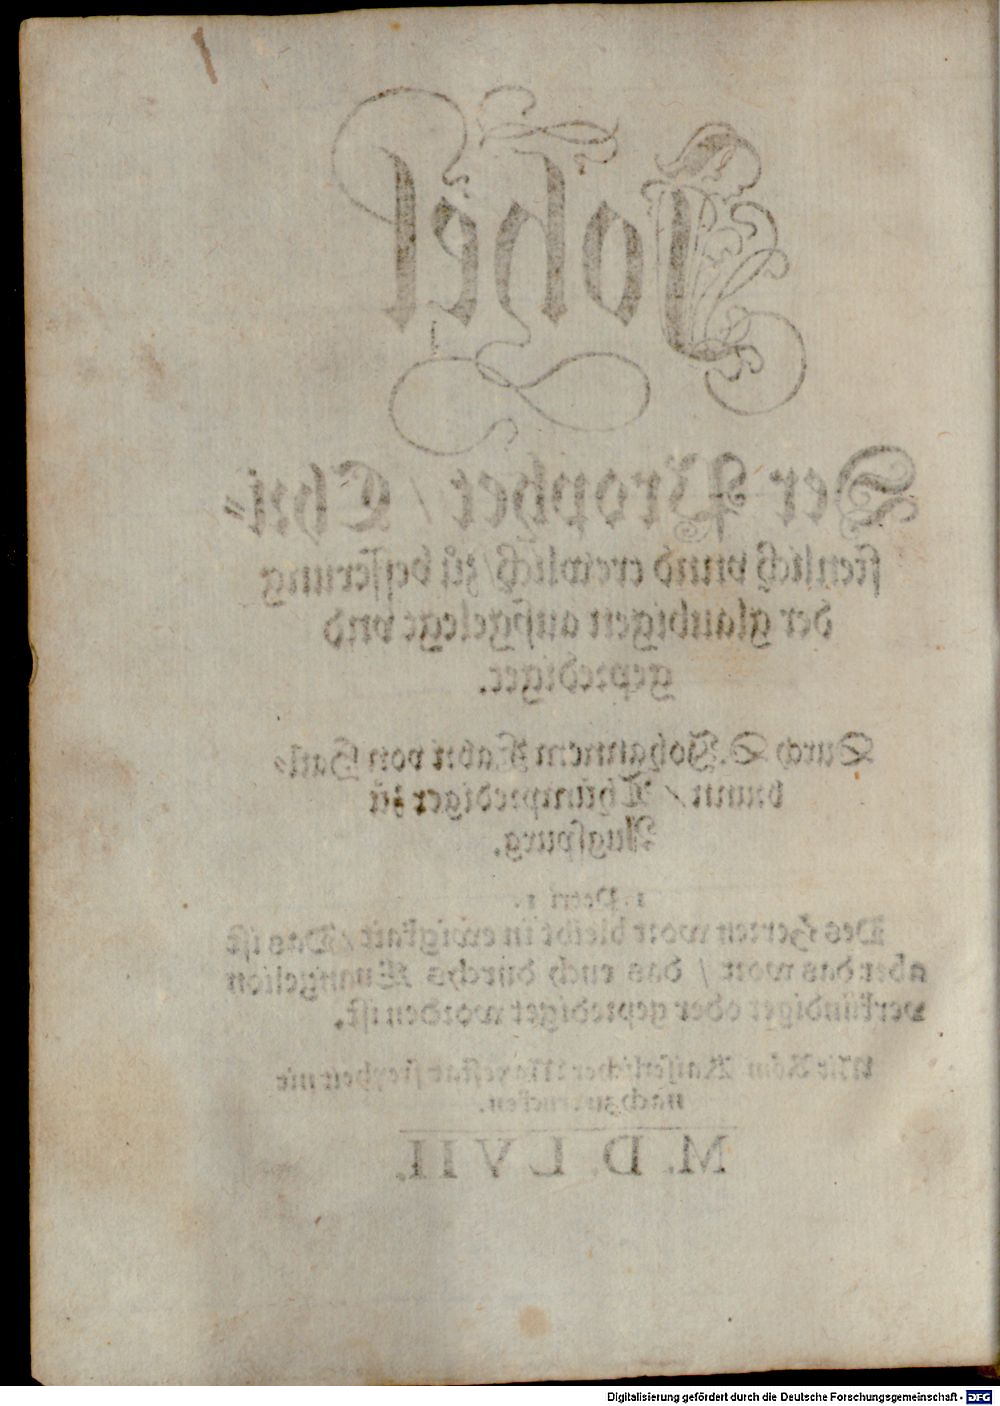 Johel
Der Prophet / Chri-
stenlich vnnd trewlich / zů besserung
der glaubigen außgelegt vnd
geprediget.
Durch D. Johannem Fabri von Hail-
brunn / Thůmprediger zů
Augspurg.
1. Petri 1.
Des Herren wort bleibt in ewigkait / Das ist
aber das wort / das euch durchs Euangelion
verkündiget oder geprediget worden ist.
Mit Röm. Kaiserlicher Mayestat freyheit nit
nachzutrucken.
M. D. LVII.
Digitalisierung gefördert durch die Deutsche Forschungsgemeinschaft - DFG